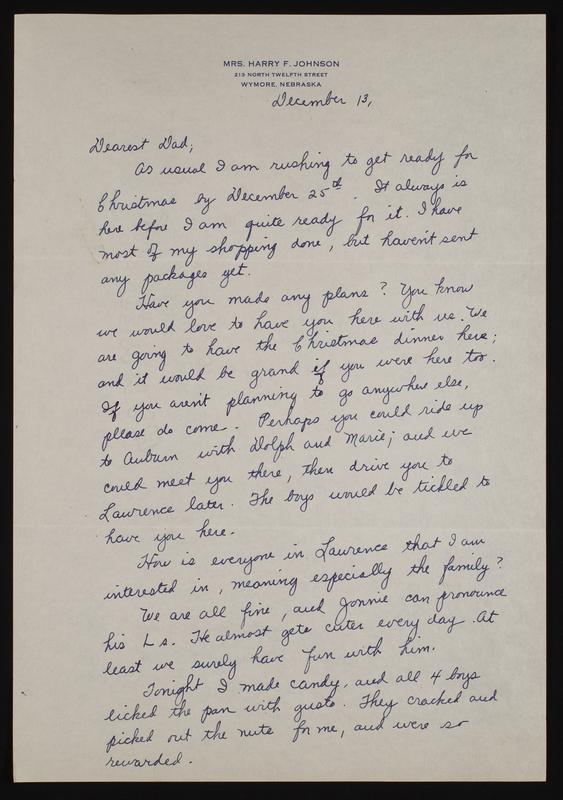 MRS. HARRY F. JOHNSON
213 NORTH TWELFTH STREET
WYMORE, NEBRASKA
December 13,
Dearest Dad;
As usual I am rushing to get ready for
Christmas by December 25th. It always is
here before I am quite ready for it. I have
most of my shopping done, but haven't sent
any packages yet.
Have you made any plans? You know
we would love to have you here with us. We
are going to have the Christmas dinner here;
and it would be grand if you were here too.
If you aren't planning to go anywhere else,
please do come. Perhaps you could ride up
to Auburn with Dolph and Marie; and we
could meet you there, then drive you to
Lawrence later. The boys would be tickled to
have you here.
How is everyone in Lawrence that I am
interested in, meaning especially the family?
We are all fine, and Jonnie can pronounce
his L s. He almost gets cuter every day. At
least we surely have fun with him.
Tonight I made candy, and all 4 boys
licked the pan with gusto. They cracked and
picked out the nuts for me, and were so
rewarded.